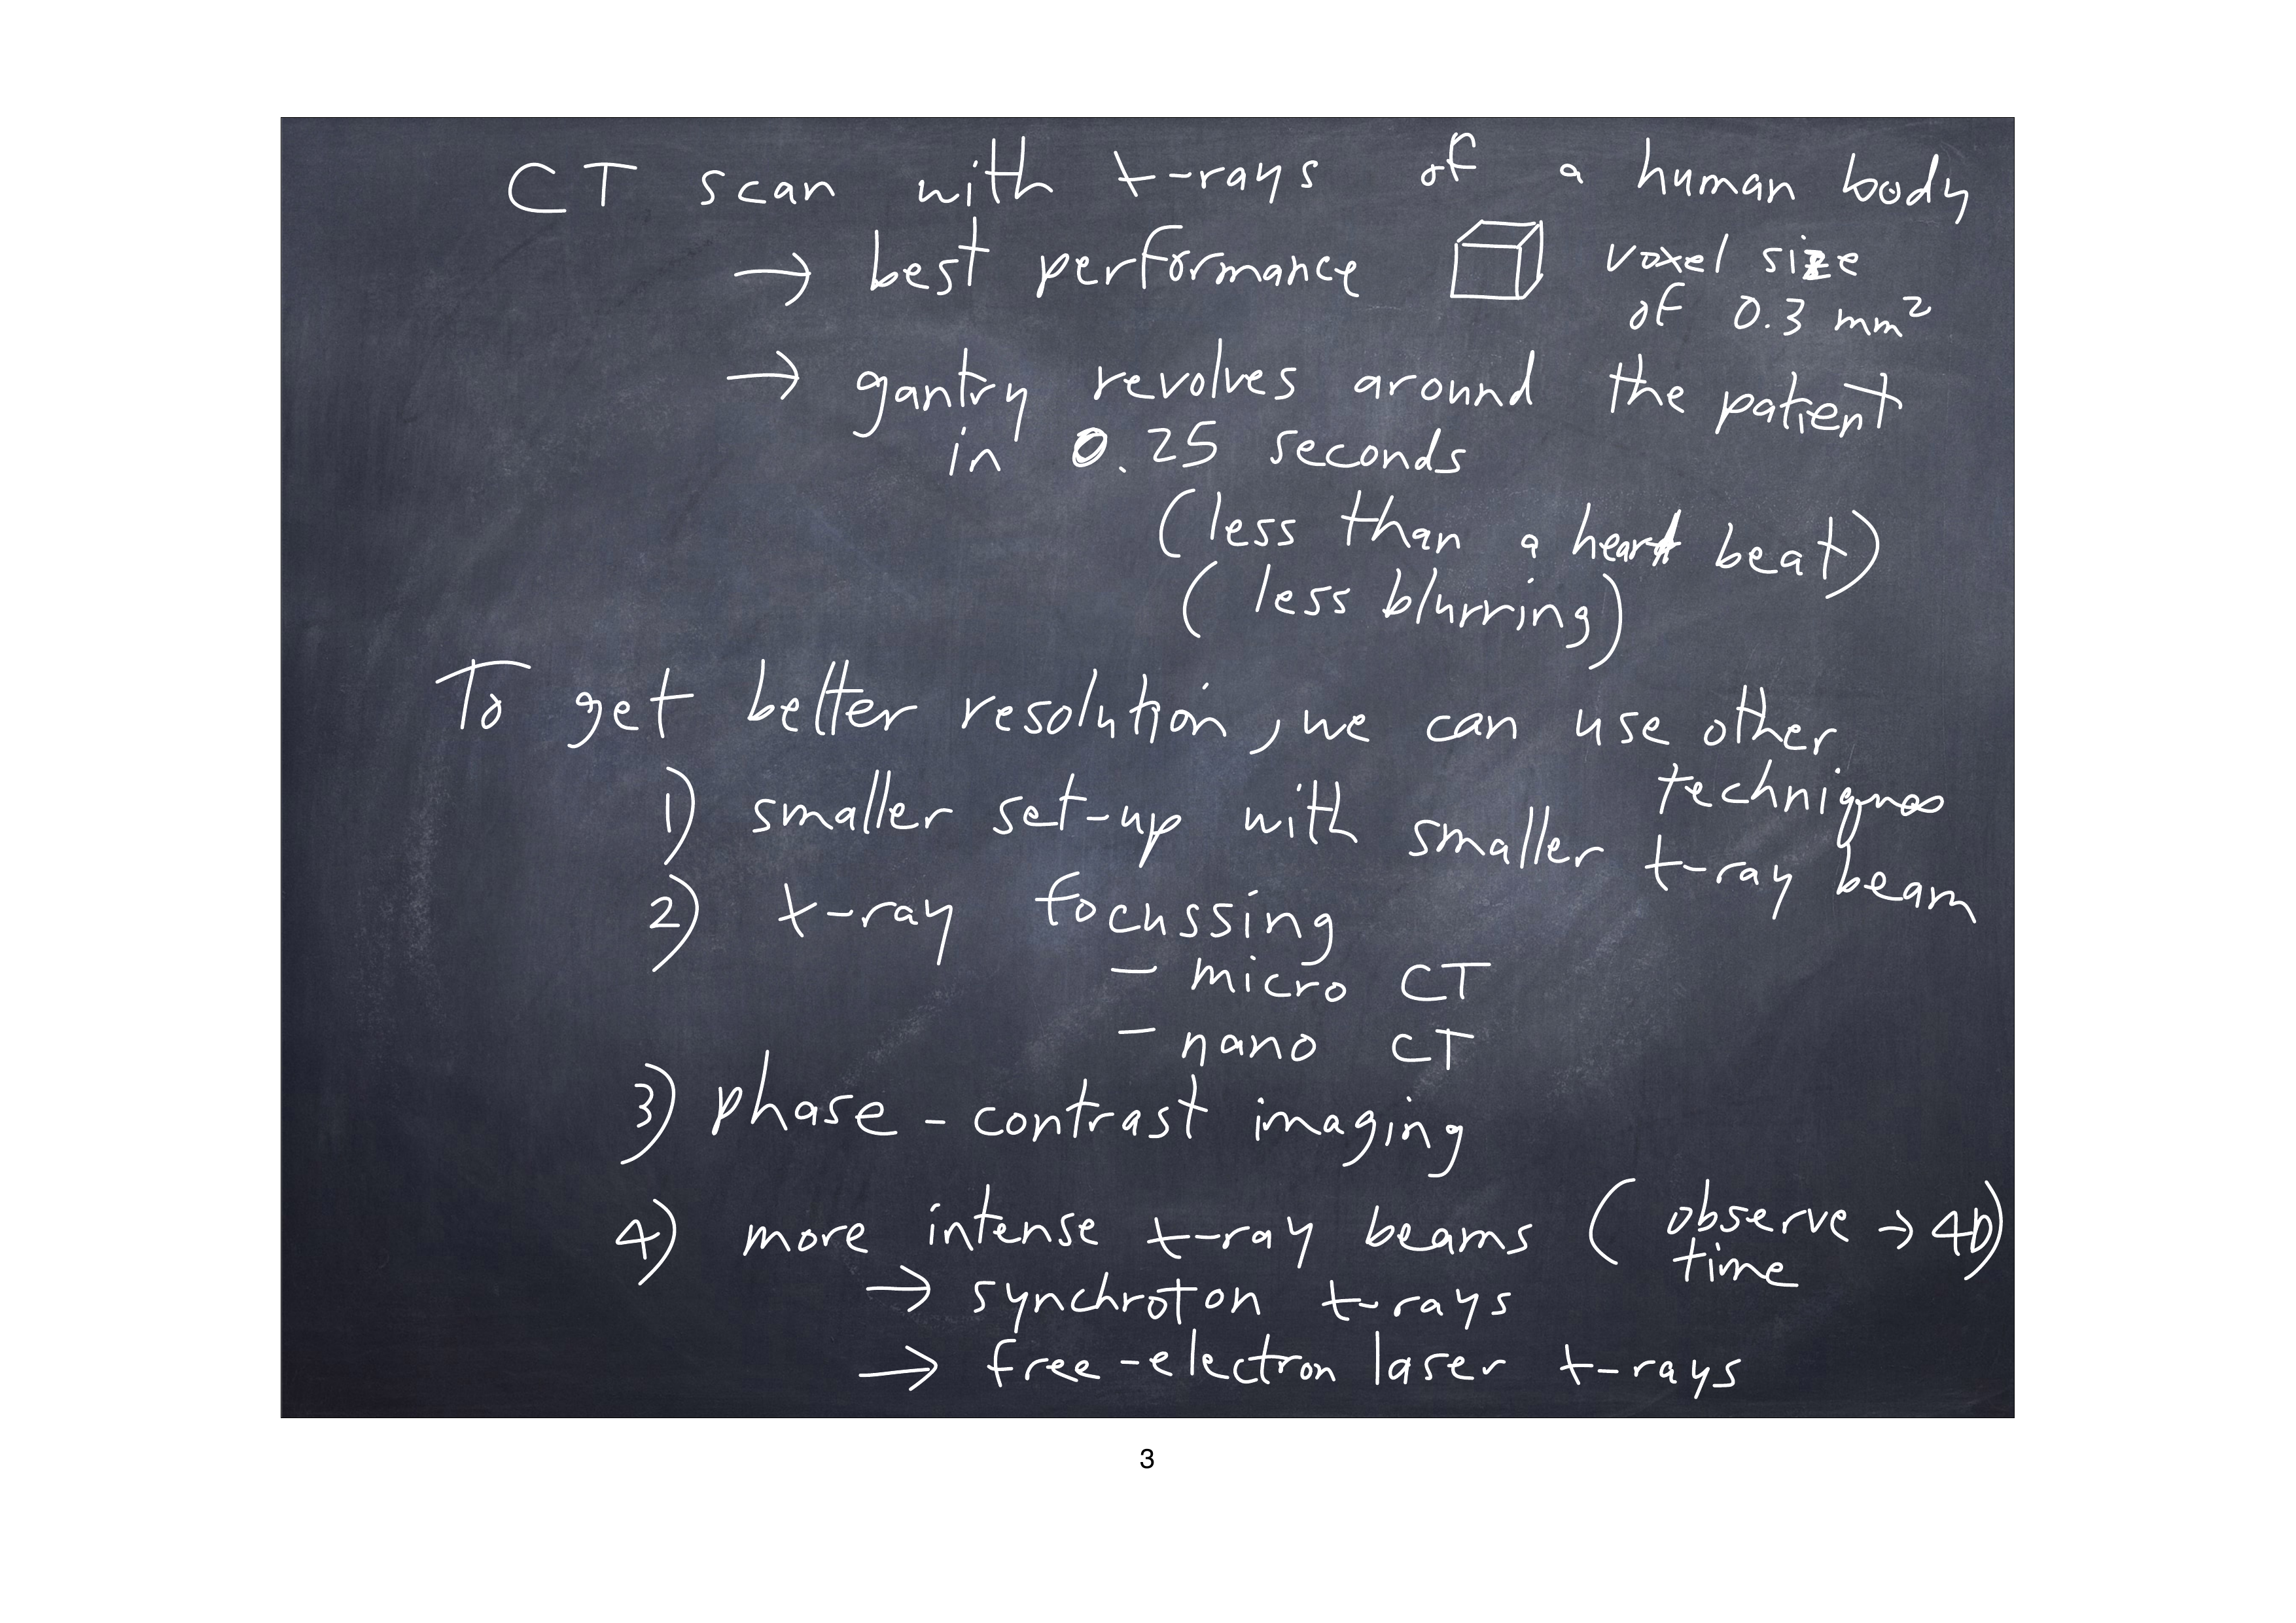 CT scan with x-rays of a human body
→ best performance voxel size
of 0.3 mm²
→ gantry revolves around the patient
in 0.25 seconds
(less than a heart beat)
(less blurring)
To get better resolution, we can use other
techniques
1) smaller set-up with smaller x-ray beam
2) x-ray focussing
- micro CT
- nano CT
3) phase-contrast imaging
4) more intense x-ray beams (observe → 4D)
time
→ synchroton x-rays
→ free-electron laser x-rays
3